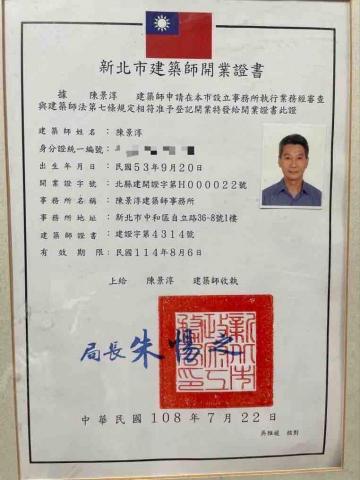 新北市建築師開業證書
據 陳景淳 建築師申請在本市設立事務所執行業務經審查
與建築師法第七條規定相符准予登記開業特發給開業證書此證
建築師姓名：陳景淳
身分證統一編號：
出生年月日：民國53年9月20日
開業證字號：北縣建開證字第H000022號
事務所名稱：陳景淳建築師事務所
事務所地址：新北市中和區自立路36-8號1樓
建築師證書：建證字第4314號
有效期限：民國114年8月6日
上給 陳景淳 建築師收執
局長 朱惕之
中華民國 108年7月22日
校對